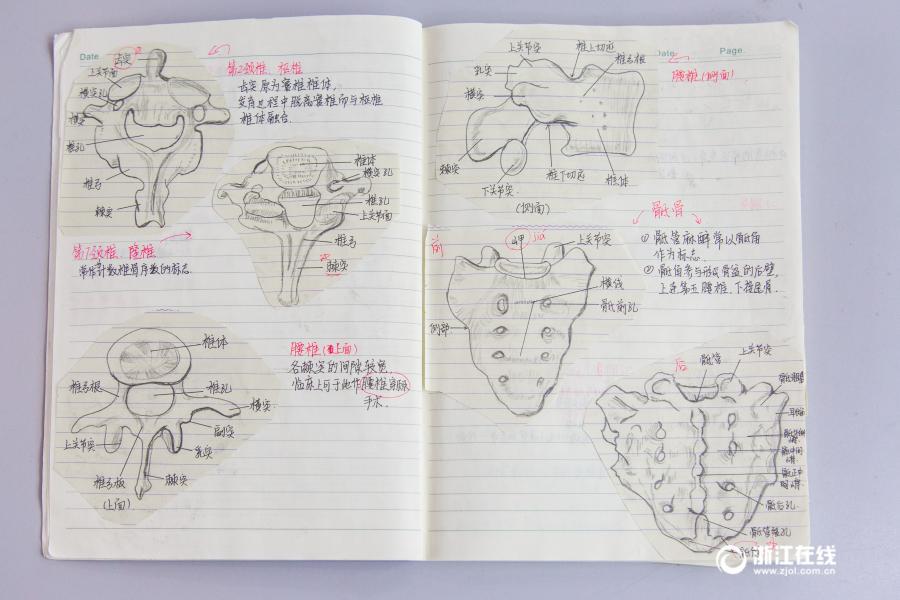 Date
齿突
上关节面
横突孔
横突
椎孔
椎弓
棘突
第2颈椎、枢椎
齿突原为寰椎椎体,
发育过程中脱离寰椎而与枢椎
椎体融合.
椎体
横突孔
椎孔
上关节面
椎弓
棘突
第7颈椎、隆椎
常作计数椎骨序数的标志.
椎体
椎弓根
椎孔
横突
上关节突
副突
乳突
椎弓板
棘突
(上面)
腰椎(上面)
各棘突的间隙较宽
临床上可于此作腰椎穿刺
手术.
Date
Page.
上关节突
椎上切迹
椎弓根
乳突
横突
棘突
下关节突
椎下切迹
椎体
(侧面)
腰椎(侧面)
骶骨
① 骶管麻醉常以骶角
作为标志.
② 骶骨参与形成骨盆的后壁,
上连第五腰椎、下接尾骨.
前
岬
jiǎ
上关节突
横线
骶前孔
侧部
后
骶管
上关节突
骶后孔
骶管裂孔
浙江在线
www.zjol.com.cn